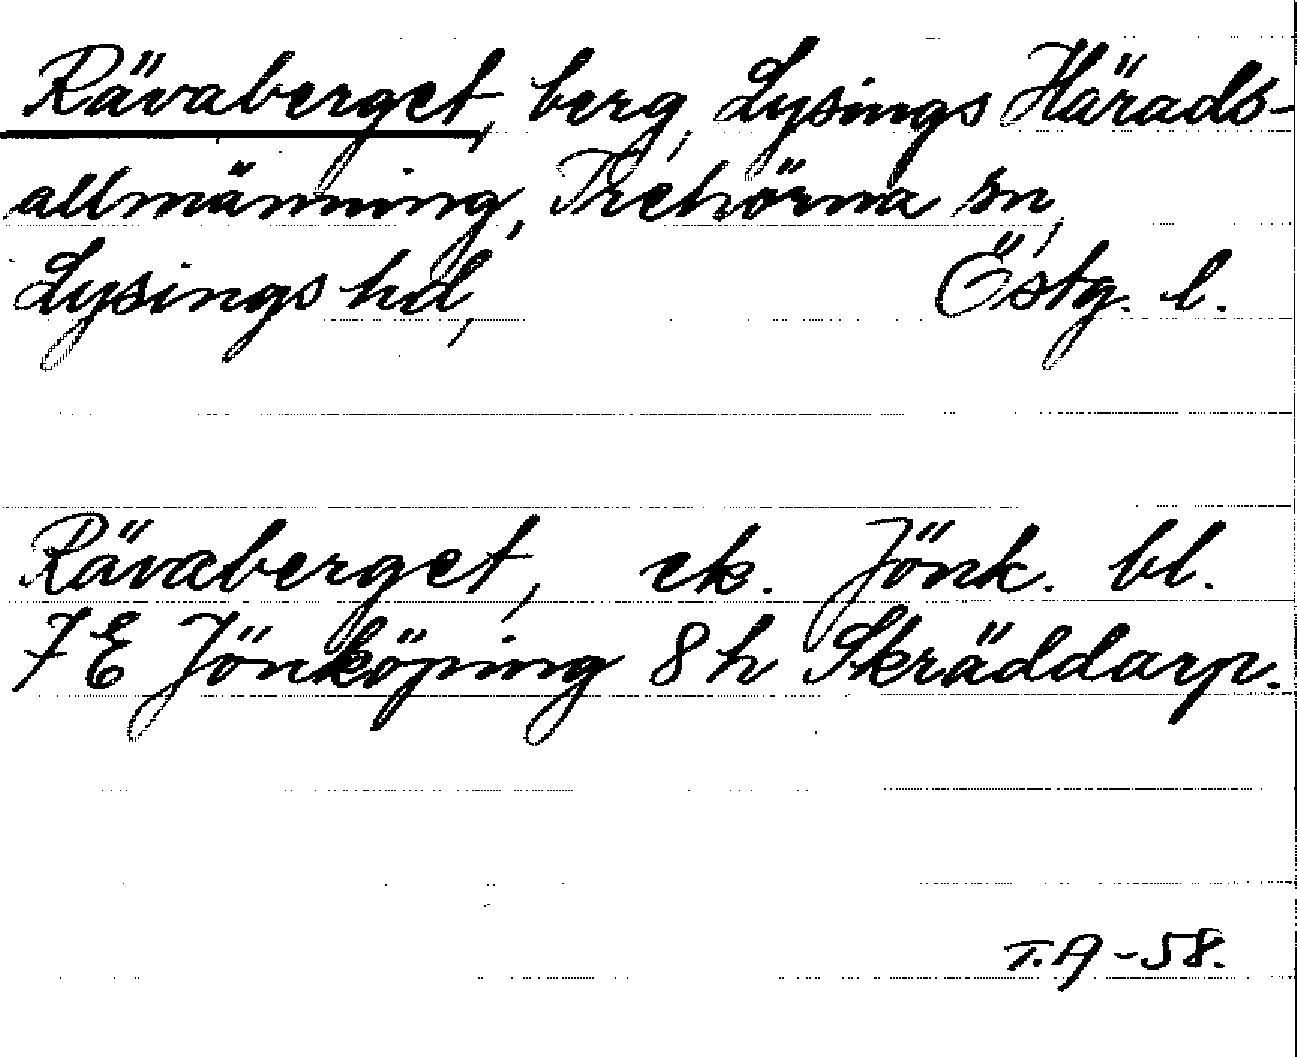 Rävaberget, berg, Lysings Härads-
allmänning, Trehörna sn,
Lysings hd, Östg. l.
Rävaberget, ek. Jönk. bl.
7 E Jönköping 8 h Skräddarp.
T.A -58.